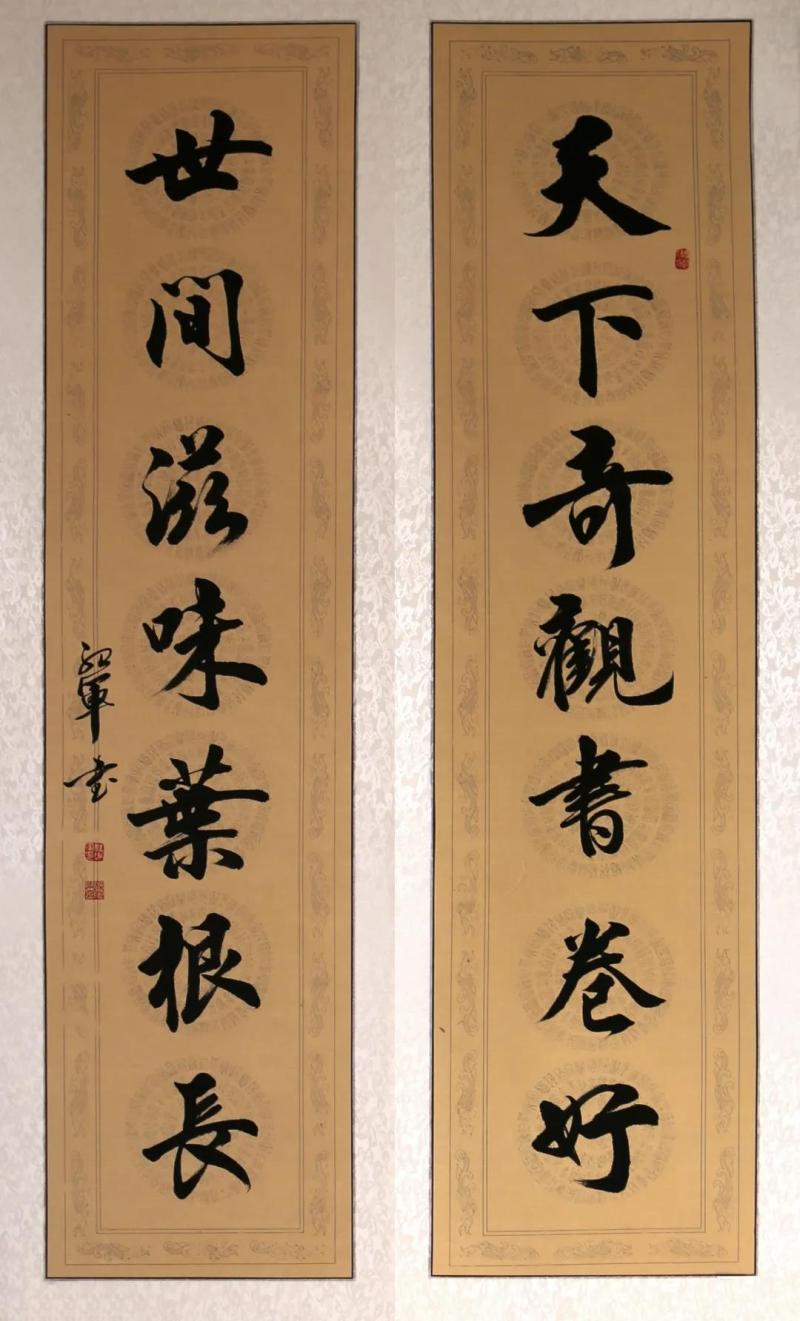 天下奇觀書卷好
世間滋味菜根長
红軍书